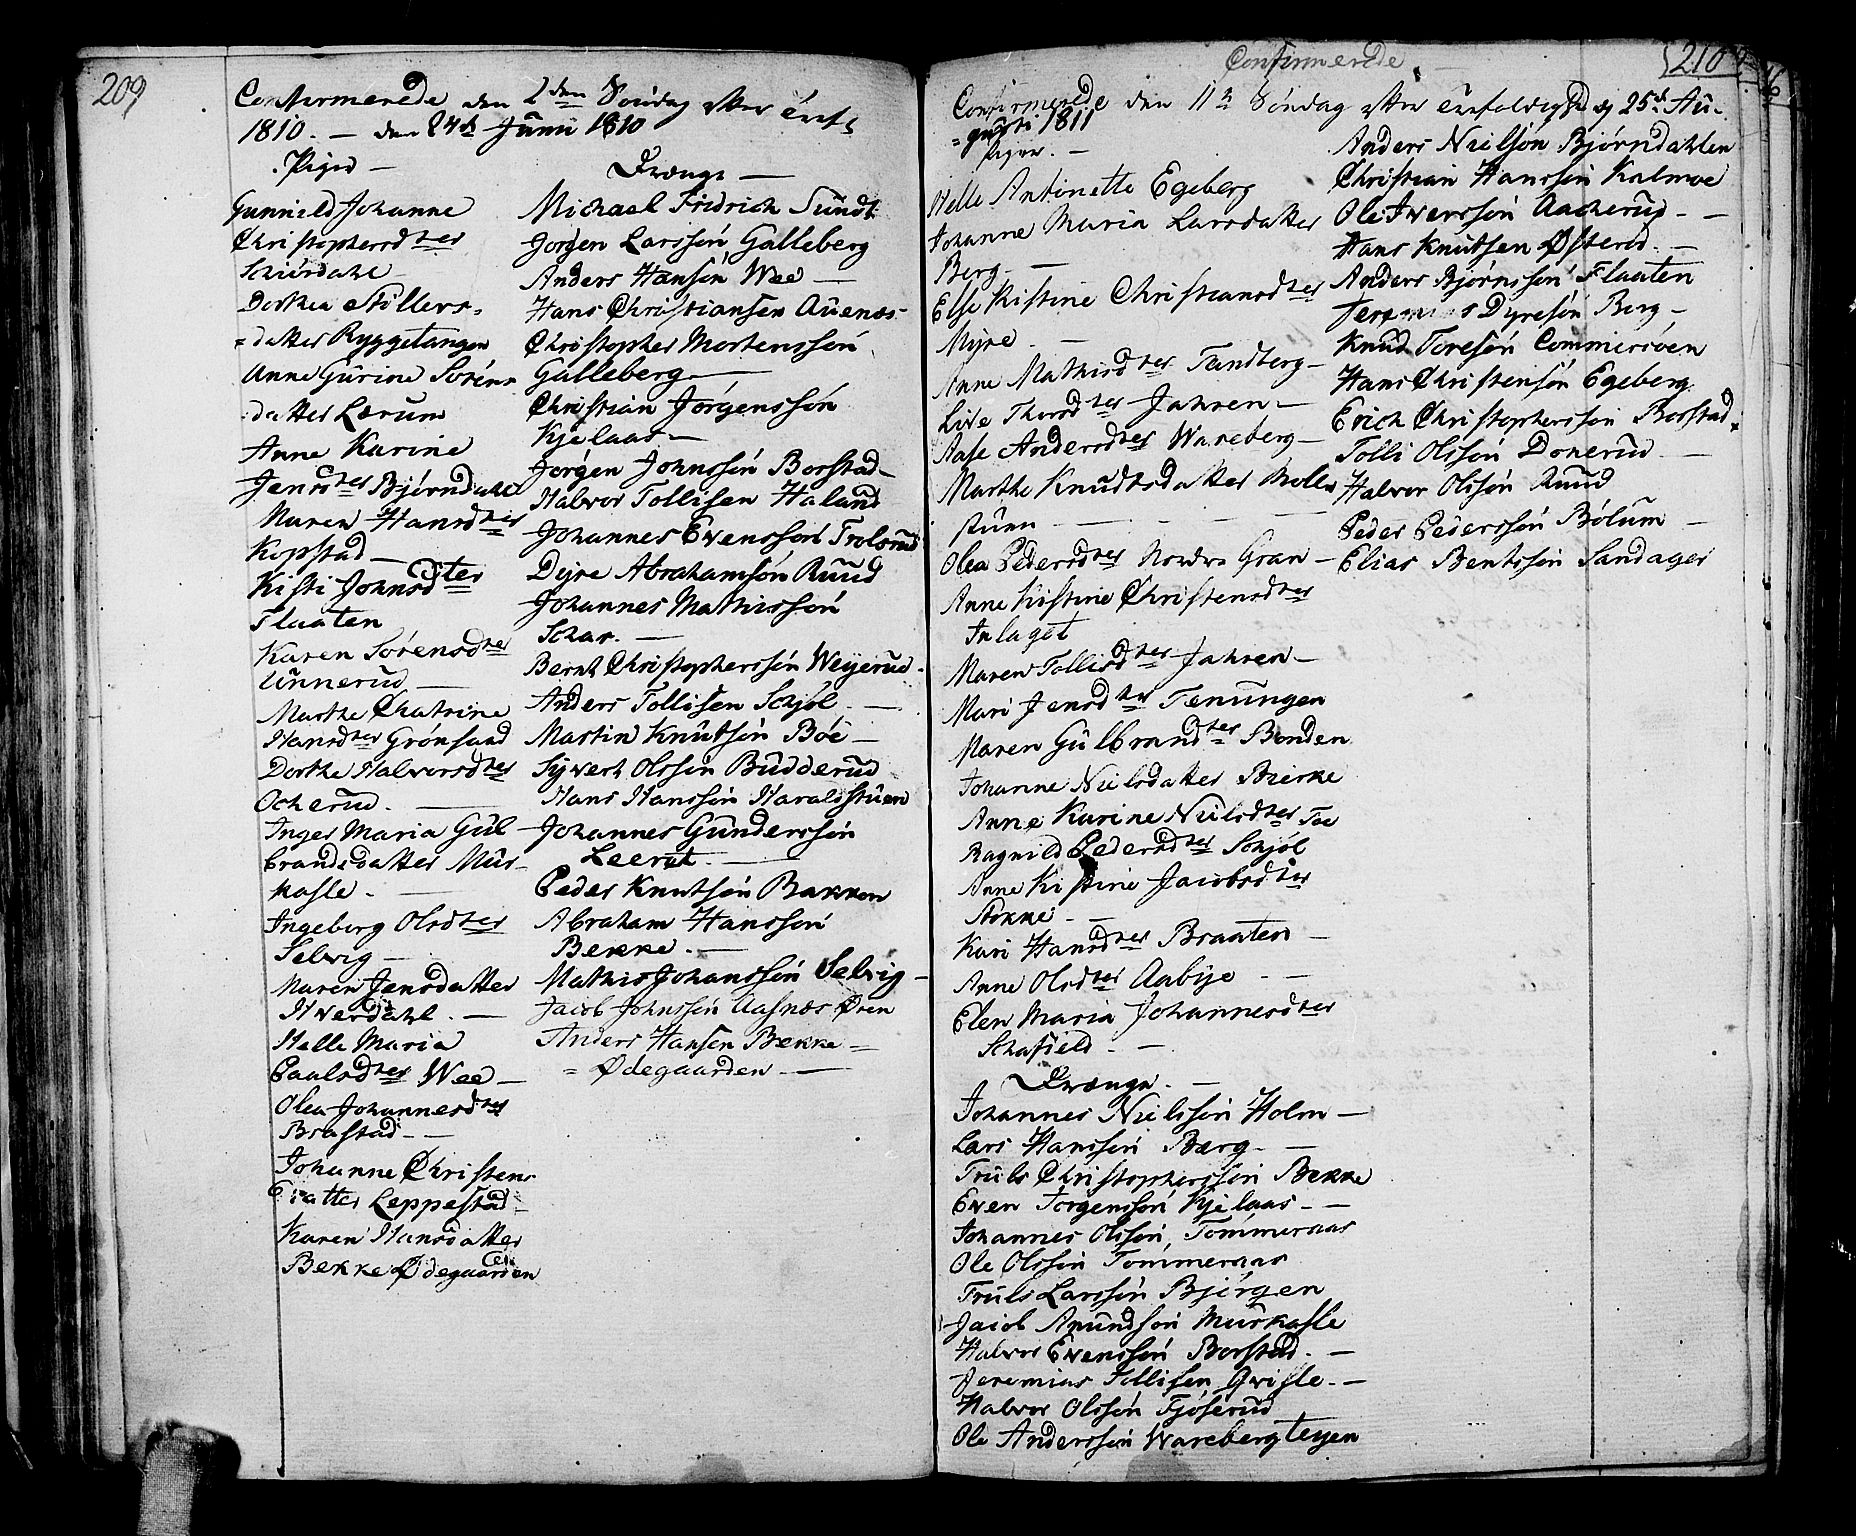 209
Confirmerede den 2den Söndag efter trinf:
1810. — den 24de Junii 1810
Piger —
Gunnild Johanne
Christophersdter
Sciirdahl
Dorthea Stillers-
=datter Ryggetangen
Anne Gurine Sørens
datter Lærum
Anne Karine
Jensdter Bjørndahl
Maren Hansdter
Kopstad —
Kisti Johnsdter
Flaaten
Karen Sørensdter
Unnerud —
Marthe Chatrine
Hansdter Grönsand
Dorthe Halvorsdter
Ocherud. —
Inger Maria Gul
brandsdatter Mur-
kasle. —
Ingeborg Olsdter
Selvig —
Maren Jensdatter
Hverdahl. —
Helle Maria
Paalsdter Wee —
Olea Johannesdter
Brastad —
Johanne Christens
datter Leppestad
Karen Hansdatter
Bekke Ødegaarden
Drænge —
Michael Fridrich Sundt
Jörgen Larssön Galleberg
Anders Hansön Wee —
Hans Christiansen Auenæs-
Christopher Mortenssön
Galleberg —
Christian Jörgenssön
Kjelaas —
Jörgen Johnssön Borstad —
Halvor Tollisen Haland
Johannes Evenssön Trolsrud
Dyre Abrahamsön Ruud
Johannes Mathissön
Schar. —
Bernt Christopherssön Weyerud.
Anders Tollisen Schjöl. —
Martin Knutsön Böe —
Syvert Olssön Budderud
Hans Hanssön Haraldstuen
Johannes Gunderssön
Leeret. —
Peder Knutsön Bakken
Abraham Hanssön
Bekke. —
Mathis Johanssön Selvig —
Jacob Johnssön Aasnæs Øren
Anders Hansen Bekke =
= Ødegaarden —
Confirmerede
210
Confirmerede den 11te Söndag efter trinfoldighed og 25de Au-
=gusti 1811
Piger. —
Helle Antonette Egeberg
Johanne Maria Larsdatter
Berg. —
Else Kistine Christiansdter
Myre. —
Anne Mathisdter Tandberg —
Live Thorsdter Jahren —
Aase Andersdter Wareberg —
Marthe Knudtsdatter Molle
stuen — — — —
Olea Pedersdter Nordre Gran —
Anne Kistine Christensdter
Inlaget
Maren Tollisdter Jahren —
Mari Jensdter Tenungen
Maren Gulbrandsdter Bonden
Johanne Nielsdatter Bierke
Anne Karine Nielsdter Toe
Ragnild Pedersdter Schjöl
Anne Kistine Jacobsdter
Stokke —
Kari Hansdter Braaten —
Anne Olsdter Aabye —
Elen Maria Johannesdter
Schafield. —
Drænge. —
Johannes Nielssön Holm —
Lars Hanssön Berg —
Truls Christopherssön Bekke
Even Jorgenssön Kjelaas —
Johannes Olssön, Tommeraas
Ole Olssön Tommeraas
Truls Larssön Bjérgen
Jacob Amundsön Murkasle
Halvor Evenssön Borstad. —
Jeremias Tollisen Qvisle. —
Halvor Olssön Fjöserud
Ole Anderssön Wareberg teyen
Anders Nielsön Bjørndahlen
Christian Hanssön Kalmoe
Ole Iverssön Aacherud —
Hans Knutsen Østerud. —
Anders Bjørnssön Flaaten
Jeremias Dyresön Berg —
Knud Toresön Commersöen
Hans Christensön Egeberg
Erich Christopherssön Borstad.
Tolli Olssön Donerud —
Halvor Olssön Ruud
Peder Pederssön Bölum —
Elias Bentssön Sandager